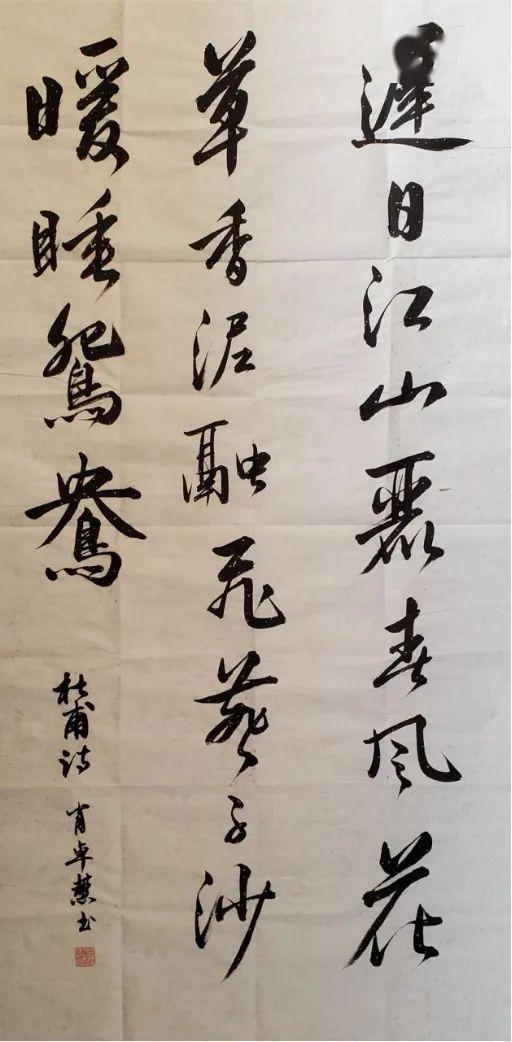 遲日江山麗春风花
草香泥融飛燕子沙
暖睡鴛鴦
杜甫詩 肖卓慧书